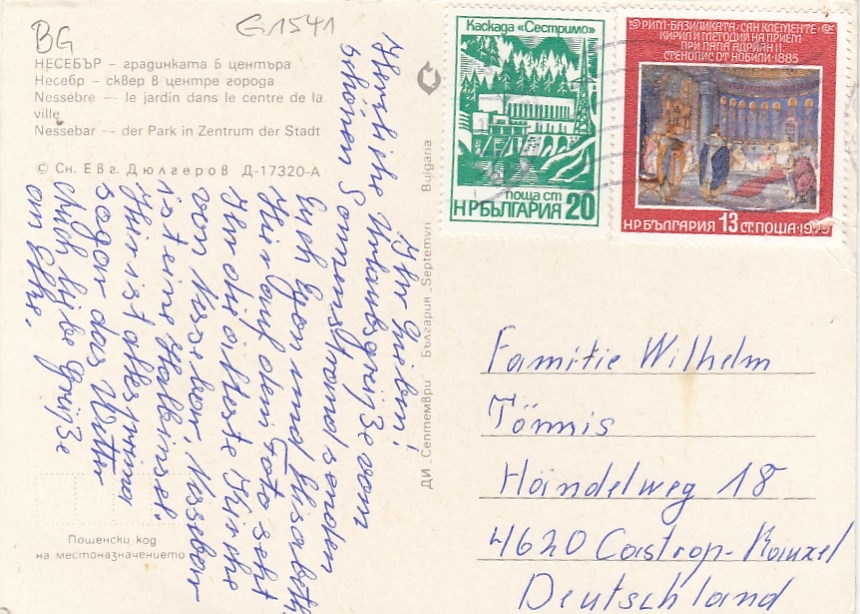 BG
G1541
НЕСЕБЪР – градинката в центъра
Несебр – сквер в центре города
Nessèbre – le jardin dans le centre de la
ville
Nessebar – der Park in Zentrum der Stadt
© Сн. Евг. Дюлгеров Д-17320-А
Ihr Lieben!
Herzliche Urlaubsgrüße vom
schönen Sonnenstrand senden
Euch Egon und Elisabeth.
Hier auf dem Foto seht
Ihr die älteste Kirche
von Nessebar, Nessebar
ist eine Halbinsel.
Hier ist alles prima
sogar das Wetter
Auch liebe Grüße
an Elke.
Пощенски код
на местоназначението
ДИ „Септември" България „Septemvri" Bulgaria
Каскада «Сестримо»
поща ст
НР БЪЛГАРИЯ 20
РИМ·БАЗИЛИКАТА·САН КЛЕМЕНТЕ
КИРИЛ И МЕТОДИЙ НА ПРИЕМ
ПРИ ПАПА АДРИАН II
СТЕНОПИС ОТ НОБИЛИ·1885
НР БЪЛГАРИЯ 13 СТ. ПОЩА·1979
Familie Wilhelm
Tönnis
Händelweg 18
4620 Castrop-Rauxel
Deutschland